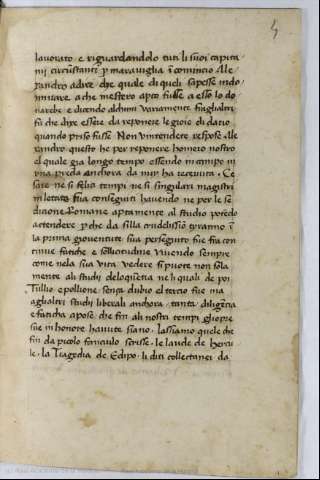 4
lavorato e riguardandolo tuti li suoi capita
ni circũstanti p maraviglia ĩ cominció Ale
xandro a dire, dite quale di queli sapesse indo
vinare a che mestero apto fusse. a esso lo do
narebe e dicendo alchuni variamente
che dire essere da reponere le gioie di dario
quando priso fusse Non vintendere respose Ale
xandro questo he per reponere homero nostro
el quale gia longo tempo essendo in campo in
una preda anchora da nui ha recevuta. Ce
sare ne si felici tempi ne si singulari magistri
in letrate sua conseguiti havendo ne per le se
ditione Romane aptamente al studio potedo
actendere p che da silla crudelissio tyranno ĩ
la prima gioventute sua perseguito fue fra con
tinue fatiche e sollicitudine Vivendo sempre
come nela sua vita vedere si puote non sola
mente ali studij deloquẽtia ne li quali de poi
Tullio e pollione senza dubio el tercio fue ma
agli altri studij liberali anchora tanta diligẽcia
e faticha apose che fin ali nostri tempi gli opre
sue in honore havute siano. lassiamo quele che
fin da picolo fanciulo scrisse. le laude de hercu
le. la Tragedia de Edipo. li diti collectanei da